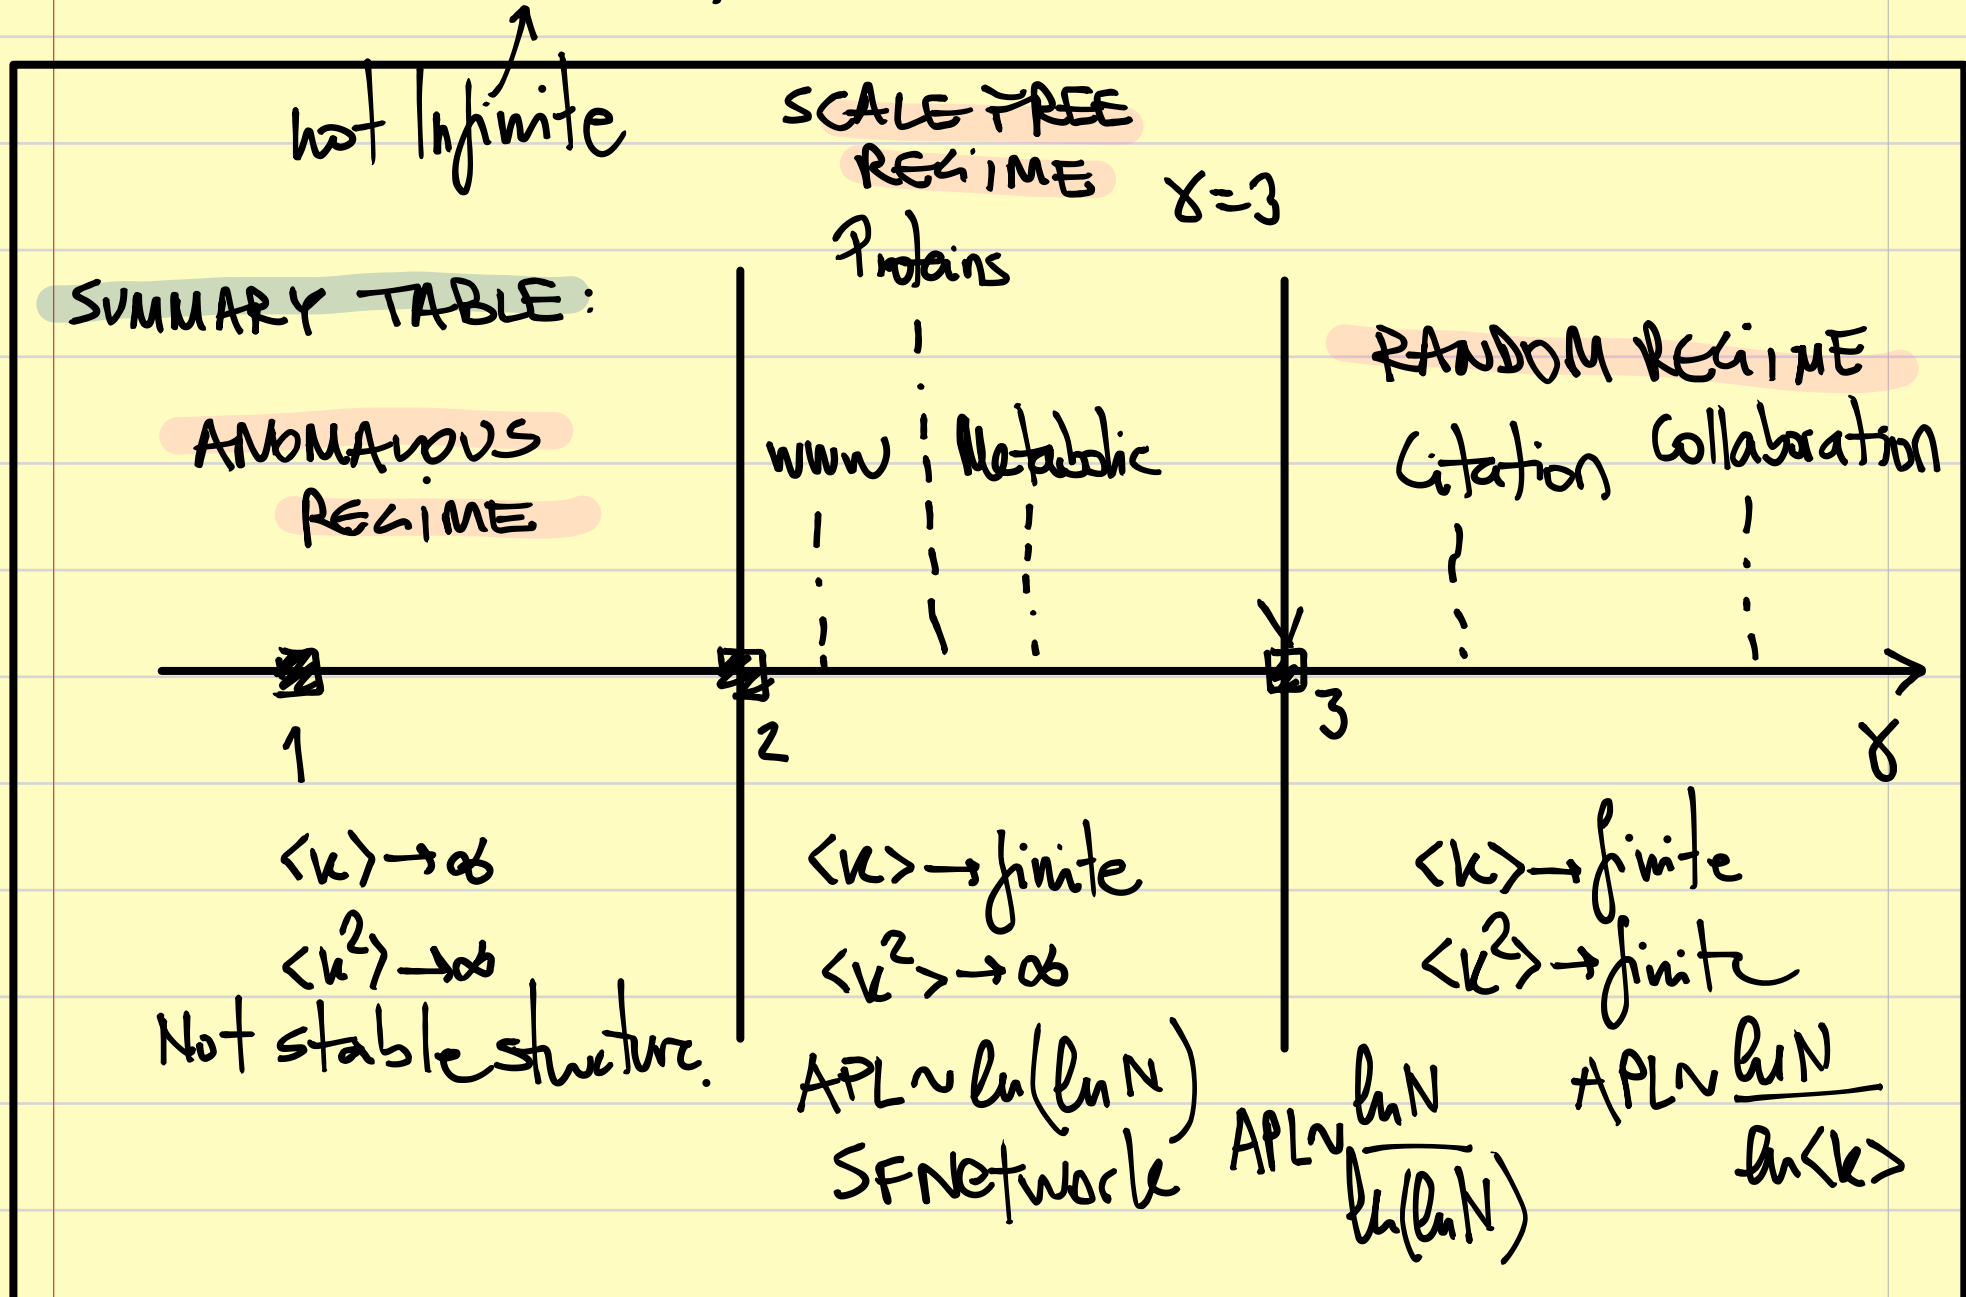 not Infinite
SCALE FREE
REGIME
γ=3
Proteins
SUMMARY TABLE:
RANDOM REGIME
ANOMALOUS
REGIME
www
Metabolic
Citation
Collaboration
1
2
3
γ
<k>→∞
<k²>→∞
Not stable structure.
<k>→finite
<k²>→∞
APL~ln(lnN)
SFNetwork
APL~lnN/ln(lnN)
<k>→finite
<k²>→finite
APL~lnN/ln<k>